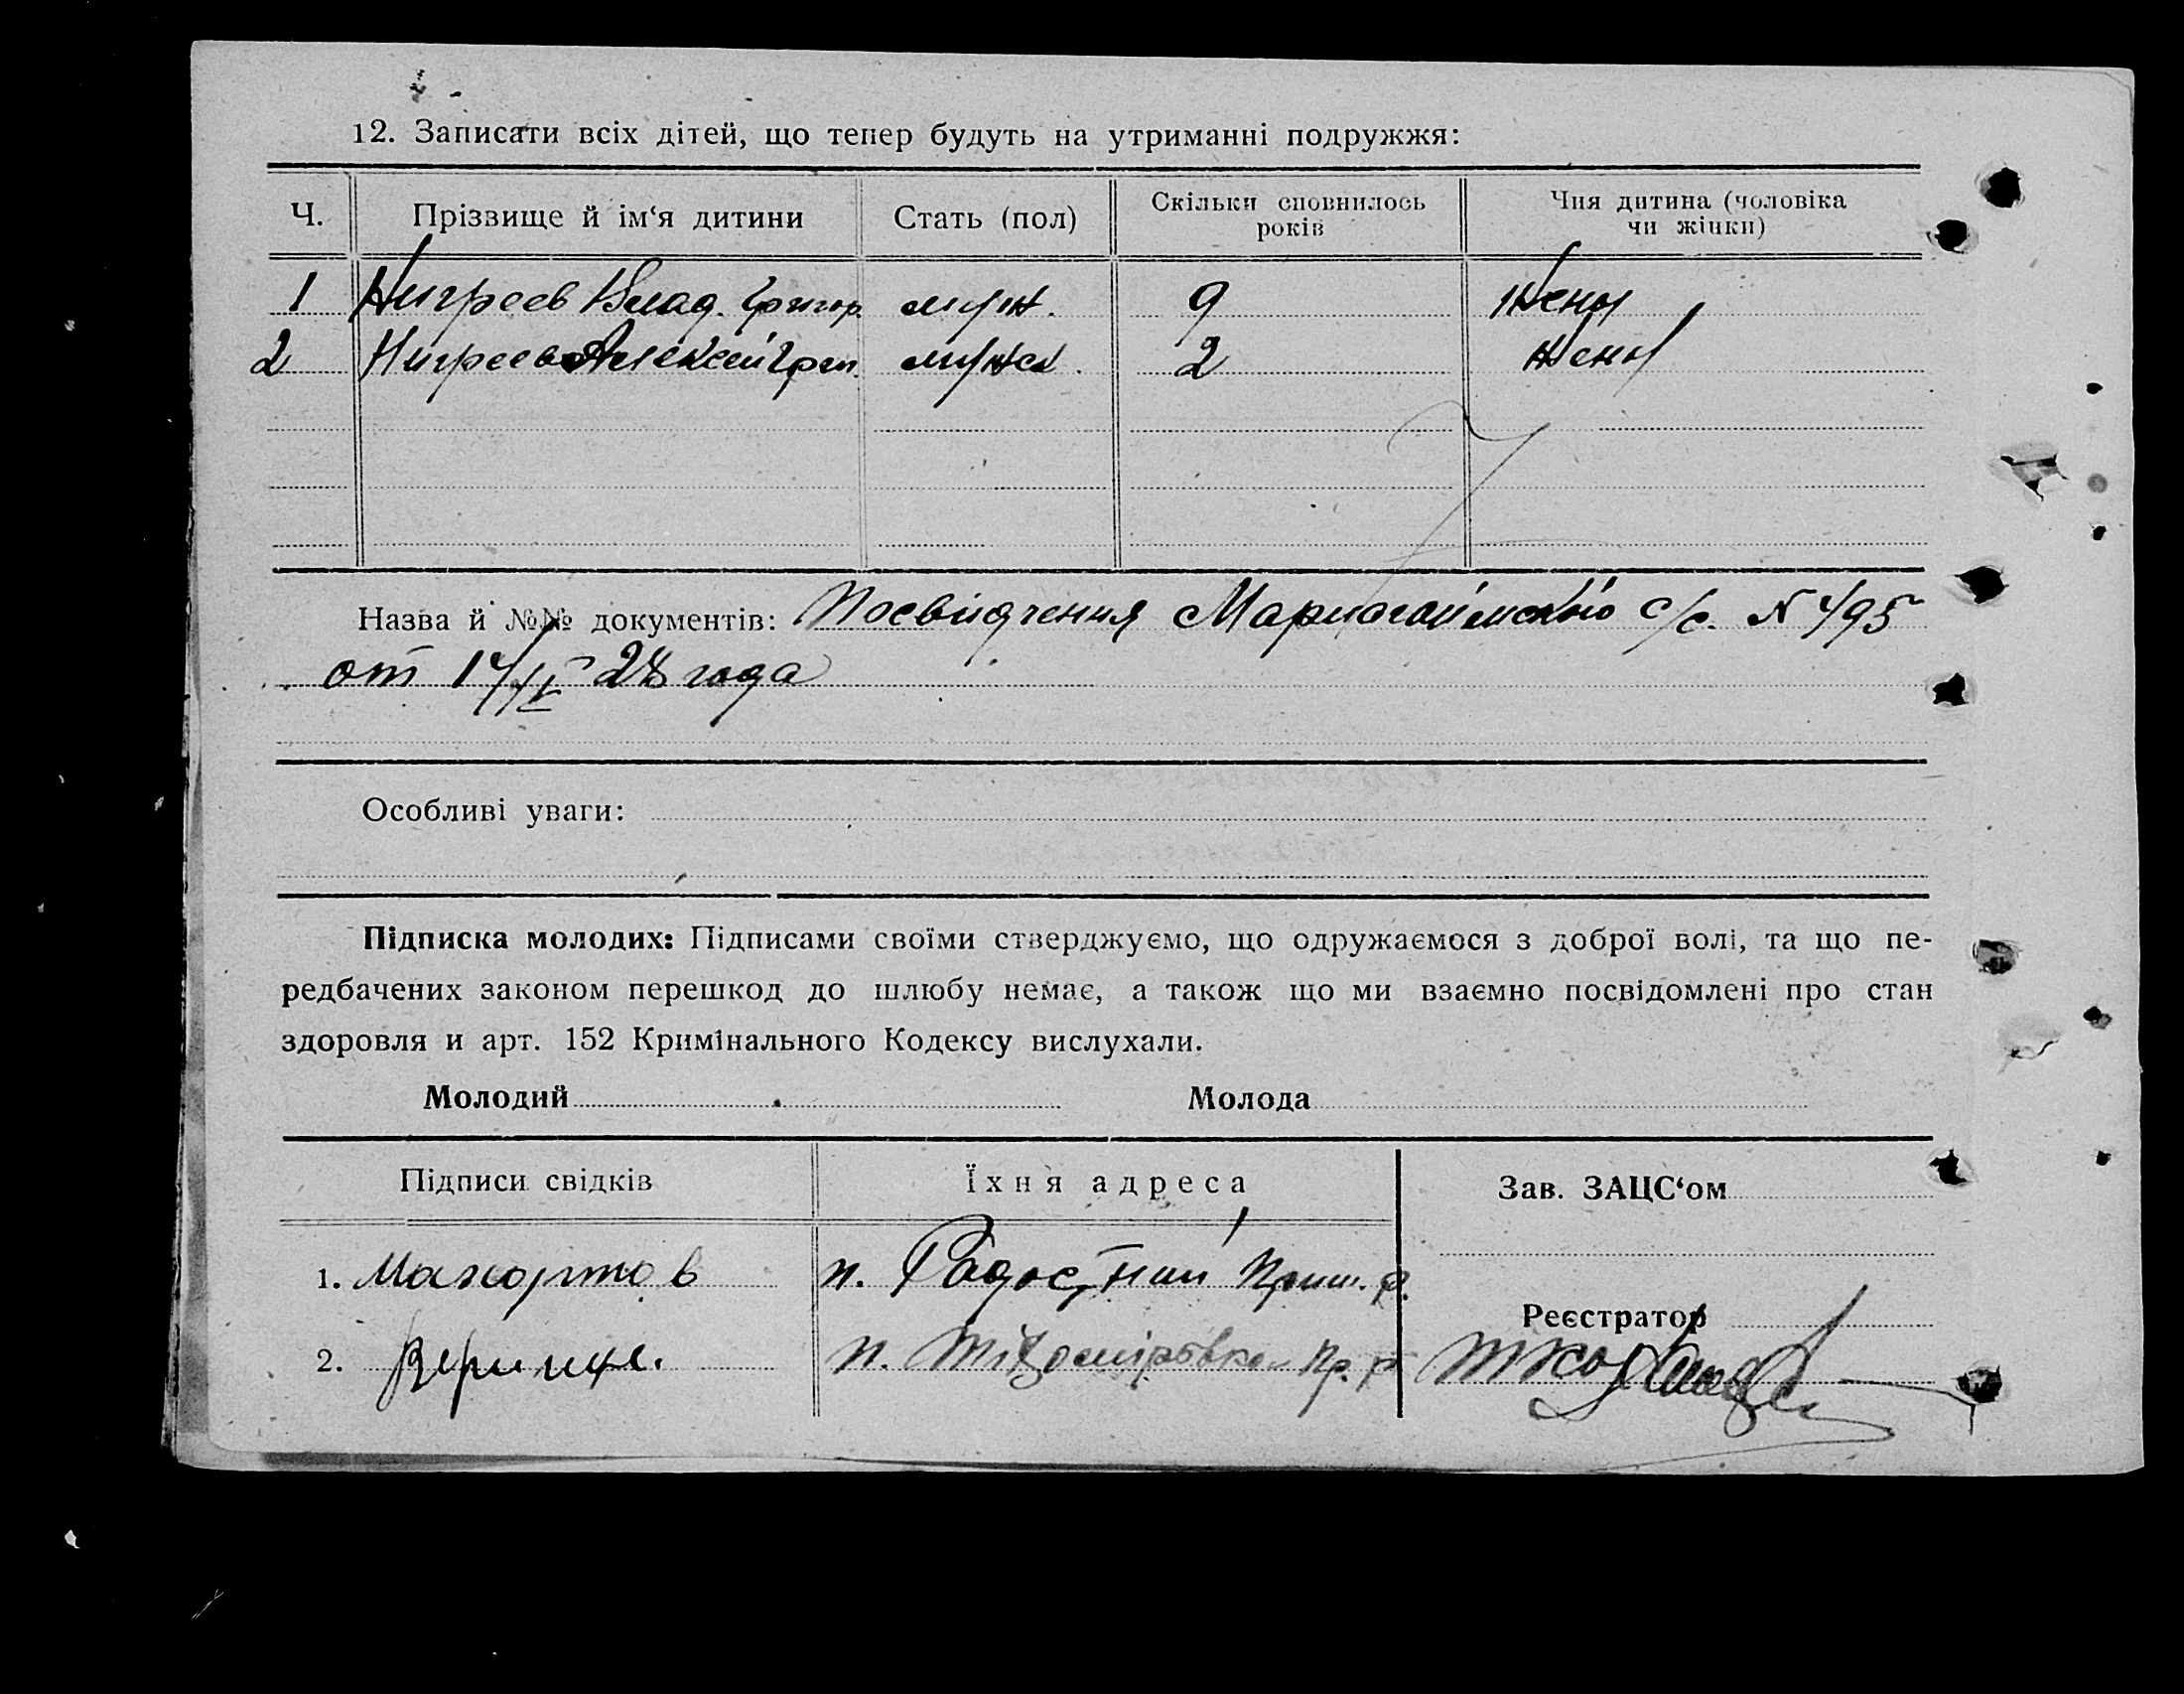 12. Записати всіх дітей, що тепер будуть на утриманні подружжя:
Ч. Прізвище й ім‘я дитини Стать (пол) Скільки сповнилось років Чия дитина (чоловіка чи жінки)
1 Нигреев Влад. Григор. муж. 9 Жены
2 Нигреев Алексей Григ. мужск. 2 Жены
Назва й №№ документів: Посвідчення с/с. N 495
от 28 года
Особливі уваги:
Підписка молодих: Підписами своїми стверджуємо, що одружаємося з доброї волі, та що пе-
редбачених законом перешкод до шлюбу немає, а також що ми взаємно посвідомлені про стан
здоровля и арт. 152 Кримінального Кодексу вислухали.
Молодий Молода
Підписи свідків Їхня адреса Зав. ЗАЦС‘ом
1. п. Радостний Приш. р.
Реєстратор
2. п. Тіхоміровка Пр. р